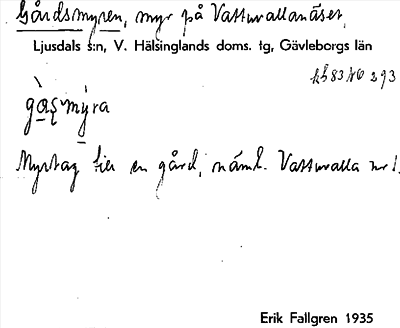 Gårdsmyren, myr på Vatturallanäset,
Ljusdals s:n, V. Hälsinglands doms. tg, Gävleborgs län
myra
Myrtag en gård, näml. Vatturalla nr 1.
Erik Fallgren 1935